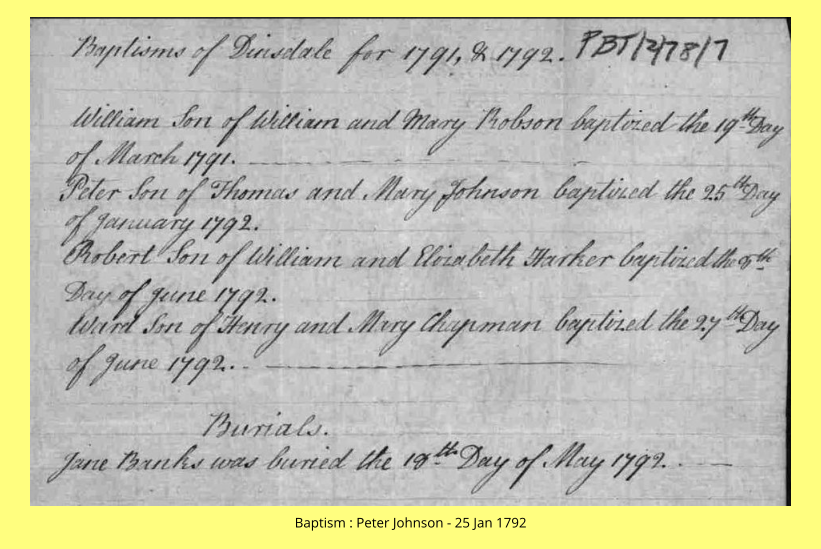 Baptisms of Dinsdale for 1791, & 1792. PBT/2/78/7
William Son of William and Mary Robson baptized the 19th Day
of March 1791.
Peter Son of Thomas and Mary Johnson baptized the 25th Day
of January 1792.
Robert Son of William and Elizabeth Harker baptized the 8th
Day of June 1792.
Ward Son of Henry and Mary Chapman baptized the 27th Day
of June 1792.
Burials.
Jane Banks was buried the 18th Day of May 1792.
Baptism : Peter Johnson - 25 Jan 1792